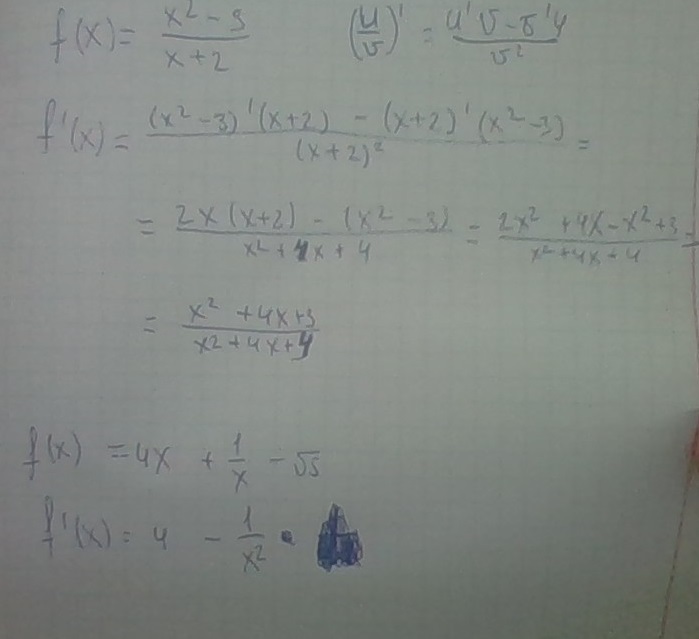 f(x) = (x² - 3)/(x + 2) (u/v)' = (u'v - v'u)/v²
f'(x) = ((x² - 3)'(x + 2) - (x + 2)'(x² - 3))/(x + 2)² =
= (2x(x + 2) - (x² - 3))/(x² + 4x + 4) = (2x² + 4x - x² + 3)/(x² + 4x + 4) =
= (x² + 4x + 3)/(x2 + 4x + 4)
f(x) = 4x + 1/x - √5
f'(x) = 4 - 1/x²